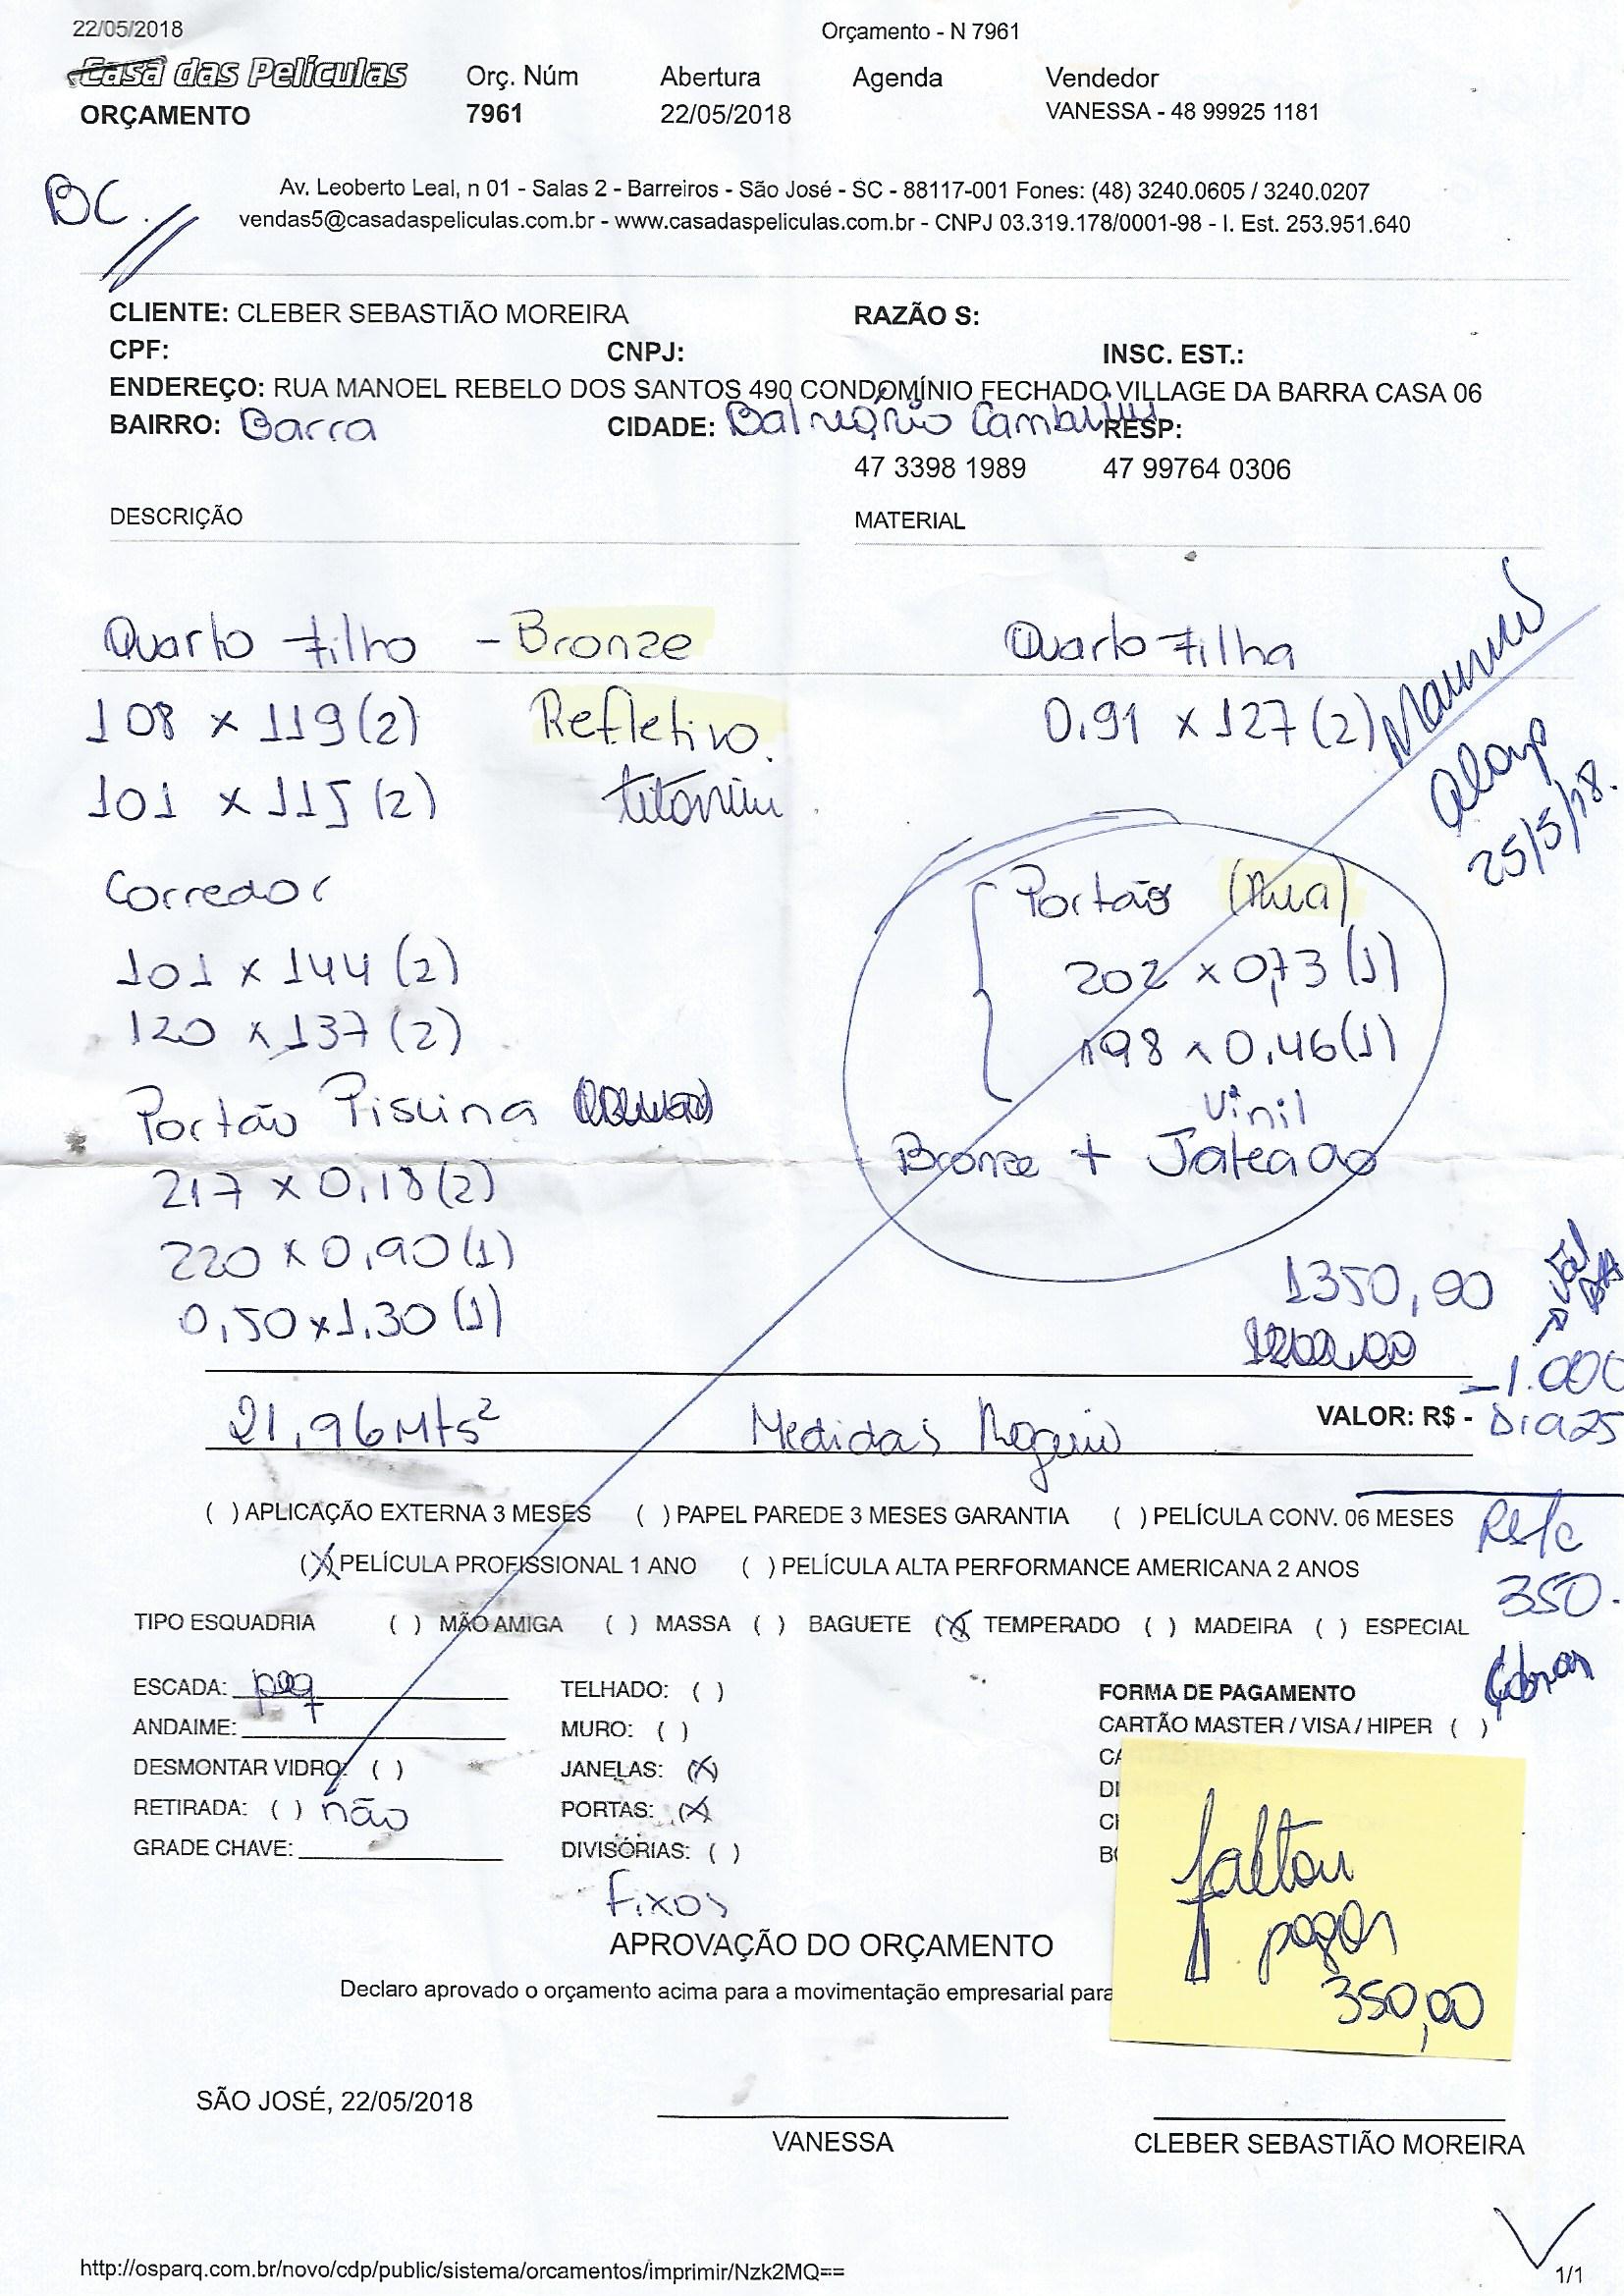 22/05/2018 Orçamento - N 7961
Casa das Películas Orç. Núm Abertura Agenda Vendedor
ORÇAMENTO 7961 22/05/2018 VANESSA - 48 99925 1181
BC.
Av. Leoberto Leal, n 01 - Salas 2 - Barreiros - São José - SC - 88117-001 Fones: (48) 3240.0605 / 3240.0207
vendas5@casadaspeliculas.com.br - www.casadaspeliculas.com.br - CNPJ 03.319.178/0001-98 - I. Est. 253.951.640
CLIENTE: CLEBER SEBASTIÃO MOREIRA RAZÃO S:
CPF: CNPJ: INSC. EST.:
ENDEREÇO: RUA MANOEL REBELO DOS SANTOS 490 CONDOMÍNIO FECHADO VILLAGE DA BARRA CASA 06
BAIRRO: Barra CIDADE: Balneário RESP:
47 3398 1989 47 99764 0306
DESCRIÇÃO MATERIAL
Quarto Filho - Bronze Quarto Filha
108 x 119 (2) Refletivo. 0,91 x 127 (2)
101 x 115 (2)
25/5/18.
Corredor Portão (Rua)
101 x 144 (2) 202 x 0,73 (1)
120 x 137 (2) 198 x 0,46 (1)
Portão Piscina Vinil
Bronze + Jateado
217 x 0,18 (2)
220 x 0,90 (1) 1350,00
0,50 x 1,30 (1) 1200,00
- 1.000
21,96 Mts² Medidas VALOR: R$ - Dia 25
( ) APLICAÇÃO EXTERNA 3 MESES ( ) PAPEL PAREDE 3 MESES GARANTIA ( ) PELÍCULA CONV. 06 MESES
350.
(X) PELÍCULA PROFISSIONAL 1 ANO ( ) PELÍCULA ALTA PERFORMANCE AMERICANA 2 ANOS
TIPO ESQUADRIA ( ) MÃO AMIGA ( ) MASSA ( ) BAGUETE (X) TEMPERADO ( ) MADEIRA ( ) ESPECIAL
ESCADA: peq TELHADO: ( ) FORMA DE PAGAMENTO
ANDAIME: MURO: ( ) CARTÃO MASTER / VISA / HIPER ( )
DESMONTAR VIDRO: ( ) JANELAS: (X)
RETIRADA: ( ) não PORTAS: (X)
GRADE CHAVE: DIVISÓRIAS: ( )
fixos
faltou
pagar
350,00
APROVAÇÃO DO ORÇAMENTO
Declaro aprovado o orçamento acima para a movimentação empresarial para
SÃO JOSÉ, 22/05/2018
VANESSA CLEBER SEBASTIÃO MOREIRA
http://osparq.com.br/novo/cdp/public/sistema/orcamentos/imprimir/Nzk2MQ== 1/1